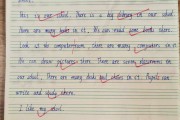 This is our school. There is a big library in our school.
There are many books in it. We can read some books there.
Look at the computer room, there are many computers in it.
We can draw pictures there. There are many classrooms in
our school. There are many desks and chairs in it. People can
write and study there.
I like my school.